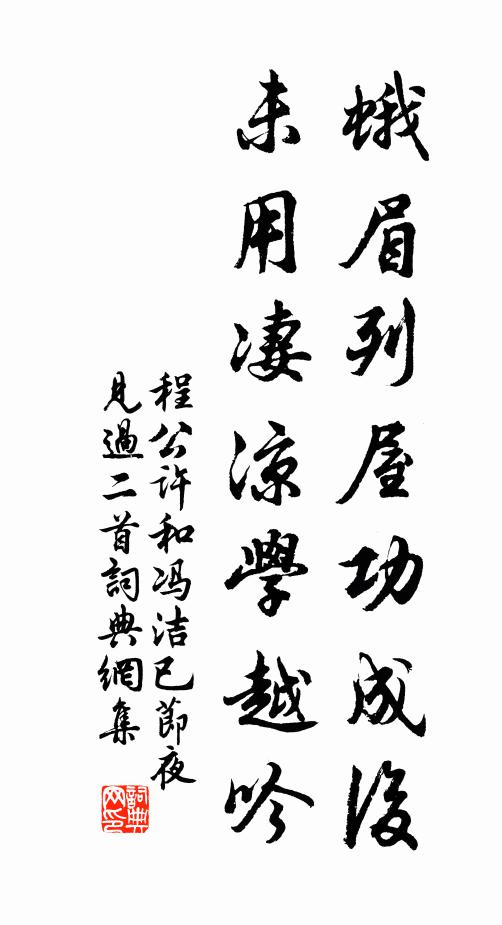 蛾眉列屋功成後
未用凄涼學越吟
程公許和冯洁己節夜
見過二首詞典網集
詞典網印